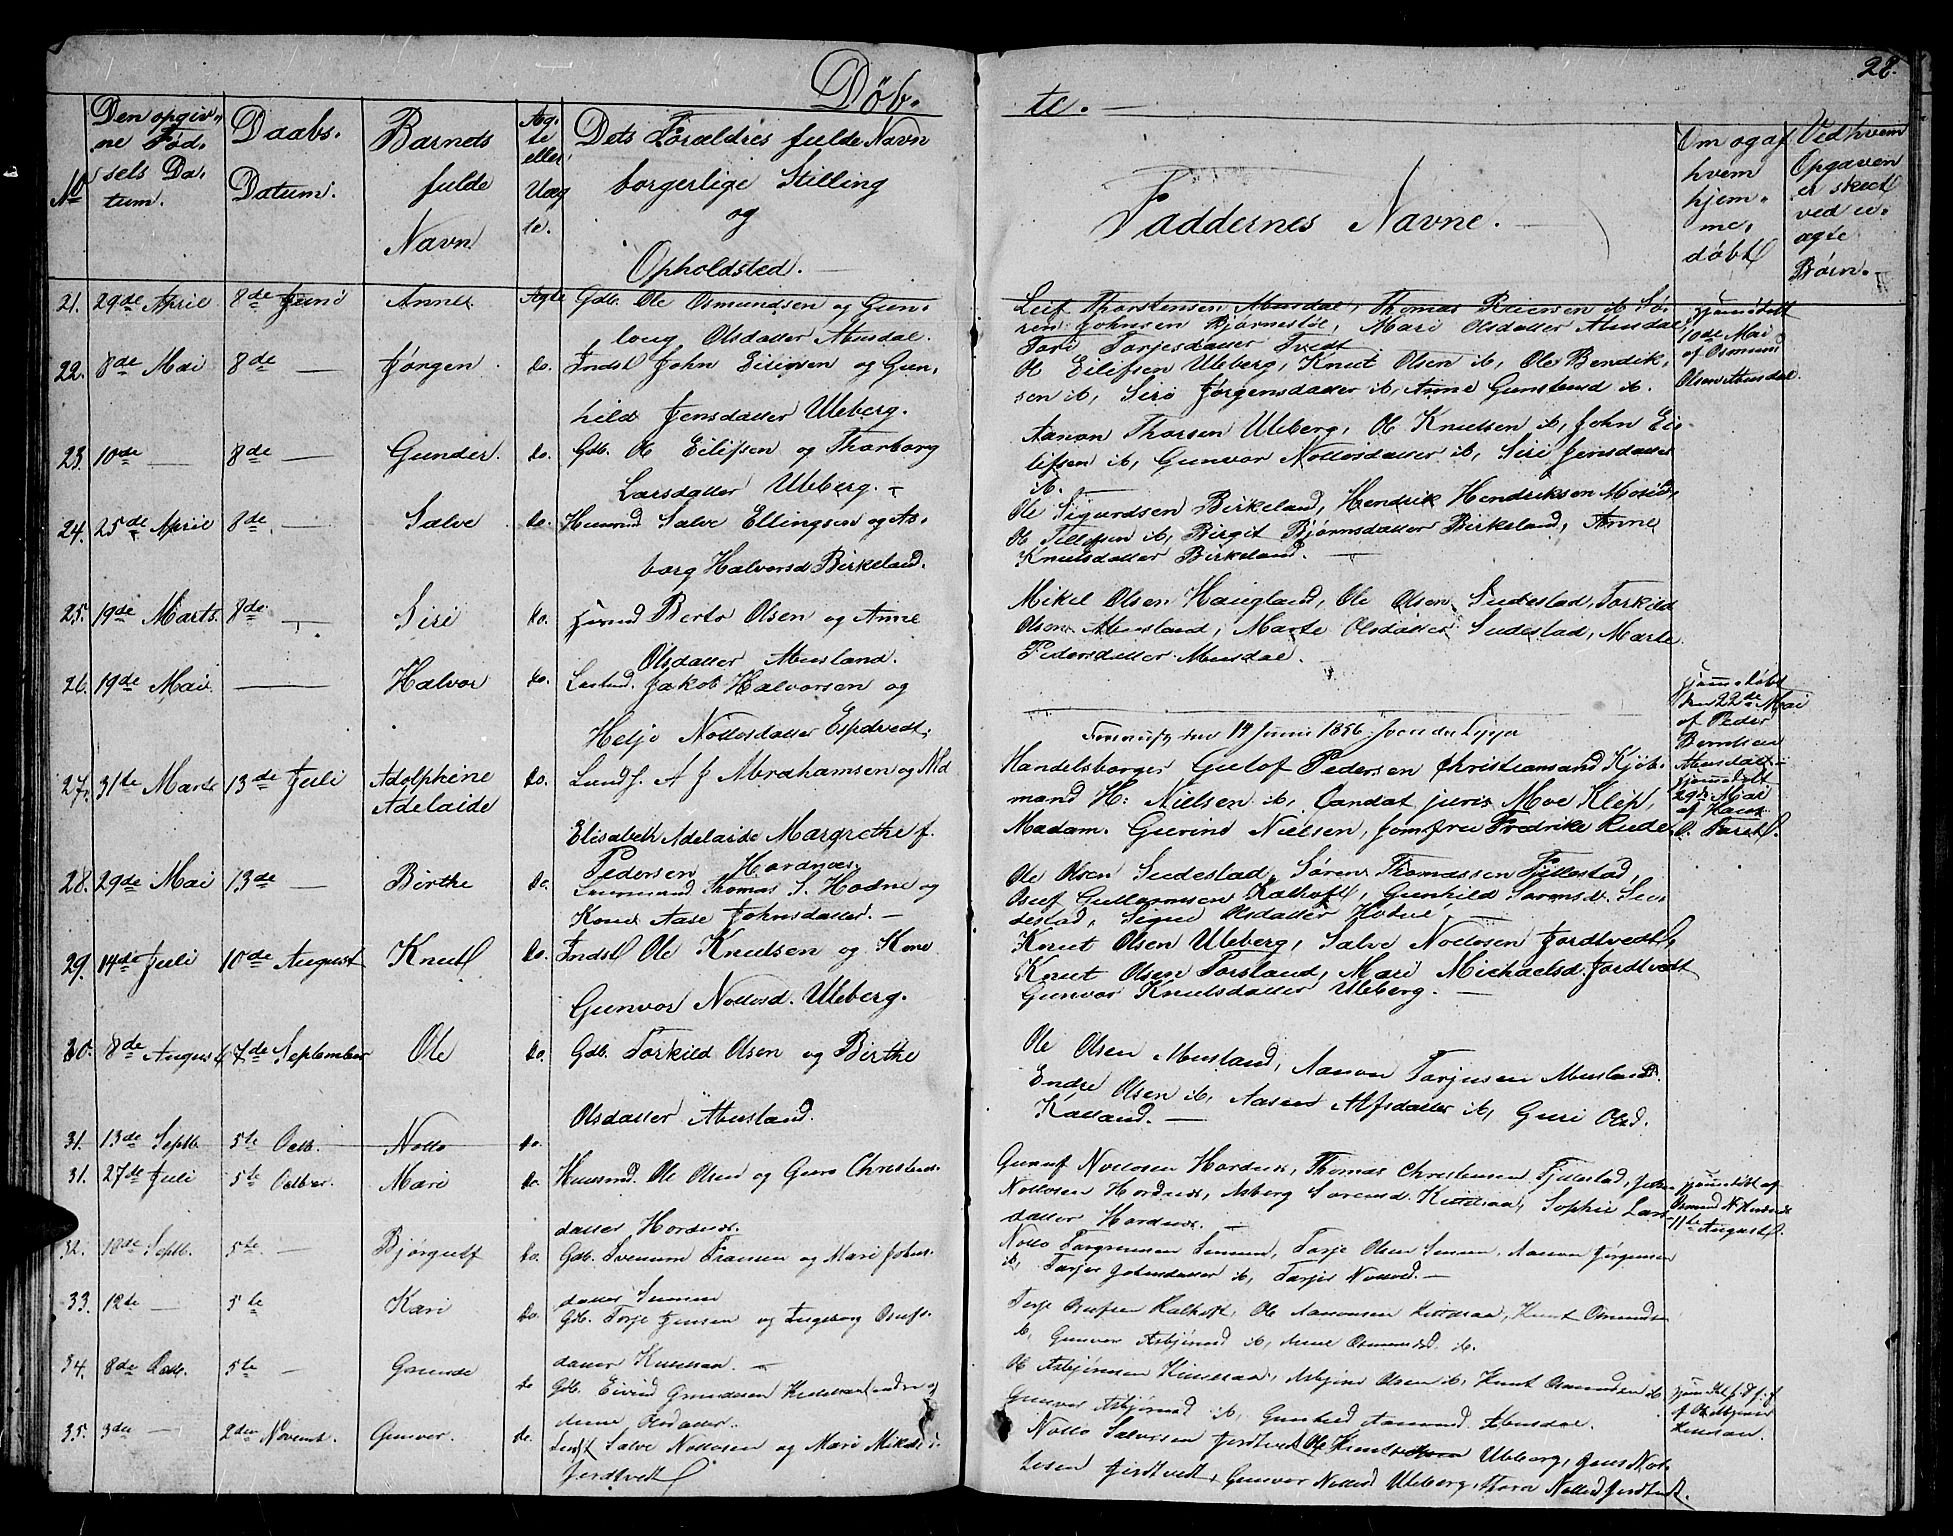 28.
Døb. te. —
No
Den opgiv-
ne Fød-
sels Da-
tum.
Daabs-
Datum.
Barnets
fulde
Navn.
Æg-
te
eller
Uæg
te.
Dets Forældres fulde Navn
borgerlige Stilling
og
Opholdsted. —
Faddernes Navne. —
Om og af
hvem
hjem-
me-
døbt
Ved hvem
Opgaven
er skeet
ved u-
ægte
Børn. —
21. 29de April 8de Juni Anne Ægte Gdb. Ole Osmundsen og Gun-
loug Olsdatter Abusdal.
Leif Thorstensen Abusdal, Thomas Reiersen ib. Sø-
ren Johnsen Bjørnestøl, Mari Olsdatter Abusdal,
Tori Tarjesdatter Tvedt
hjemmedøbt
10de Mai
af Osmund
Olsen Abusdal.
22. 8de Mai 8de — Jørgen do. Indst John Eilevsen og Gun-
hild Jensdatter Uleberg.
Ole Eilefsen Uleberg, Knut Olsen ib, Ole Bendik-
sen ib, Siri Jørgensdatter ib, Anne Gunstensd ib.
23. 10de — 8de — Gunder. do. Gdb. Ole Eilifsen og Thorborg
Larsdatter Uleberg. —
Aanon Thorsen Uleberg, Ole Knutsen ib, John Ei-
lifsen ib, Gunvor Nottosdatter ib, Siri Jensdatter
ib.
24. 25de April 8de — Salve do. Huusmd Salve Ellingsen og As-
borg Halvorsd Birkeland.
Ole Sigurdsen Birkeland, Hendrik Hendriksen Mosid,
Ole Tellefsen ib, Birgit Bjørnsdatter Birkeland, Anne
Knutsdatter Birkeland. —
25. 19de Marts. 8de — Siri do. Huusmd Berto Olsen og Anne
Olsdatter Abusland.
Mikel Olsen Haugland, Ole Olsen Sudestad, Torkild
Olsen Abusland, Marte Olsdatter Sudestad, Marte
Pedersdatter Abusdal.
26. 19de Mai. — Halvor do. Jakob Halvorsen og
Helje Nottosdatter Espetvedt.
hjemmedøbt
den 22de Mai
af Peder
Berntsen
Abusdal
19 Juni 1856
27. 31te Marts 13de Juli Adolphine
Adelaide
do. Lundh. A J Abrahamsen og Md
Elisabeth Adelaide Margrethe f.
Pedersen Hordnæs.
Handelsborger Gutof Pedersen Christiansand Kjøb-
mand H: Nielsen ib, Candat juris Moe Klep,
Madam. Gurind Nielsen, Jomfru Fredrike Rude.
hjemmedøbt
29de Mai
af Knut
O. Tarst.
28. 29de Mai 13de — Birthe do. Thomas S. Hodne og
Kone Aase Johnsdatter. —
Ole Olsen Sudestad, Søren Thomassen Fjellestad,
Osuf Guttormsen Kalhoft, Gunhild Sørensd. Su-
destad, Signe Olsdatter Hodne
29. 14de Juli 10de August Knut do. Indst Ole Knutsen og Kone
Gunvor Nottosd. Uleberg.
Knut Olsen Uleberg, Salve Nottosen Jordtvedt,
Knut Olsen Torsland, Mari Michaelsd. Jordtvedt
Gunvor Knutsdatter Uleberg. —
30. 8de August 7de September Ole do. Gdb. Torkild Olsen og Birthe
Olsdatter Abusland.
Ole Olsen Abusland, Aanon Tarjusen Abusland.
Endre Olsen ib, Aasen Alfsdatter ib, Guri Olsd.
Kalland. —
31. 13de Septb. 5te Octb. Notto do.
31. 27de Juli 5te Octber. Mari do. Huusmd. Ole Olsen og Guro Christens-
datter Hordnæs.
Gunuf Nottosen Hordnæs, Thomas Christensen Fjellestad,
Nottosen Hordnæs, Asberg Sørensd. Kittelsaa, Sophie Lars-
datter Hordnæs. —
hjemmedøbt af
Osmund N. Hordnæs
11te August.
32. 10de Septb. 5te — Bjørgulf do. Gdb. Svenum Fransen og Mari Johns-
datter Senum
Notto Torgrimsen Senum, Tarje Olsen Senum, Aanon Jørgensen
ib, Tarjer Johnsdatter ib, Tarjer Nottosd. —
33. 12te — 5te Kari do. Gdb. Torje Jensen og Ingeborg Osufs-
datter Kittelsaa. —
Torje Osufsen Kalhoft, Ole Aanonsen Kittelsaa, Knut Osmunds
ib, Gunvor Asbjørnsd ib, Anne Osmundsd. ib.
34. 8de Octb. 5te — Gunde do Gdb. Eivind Gundesen Kittelsaa og
Anne Olsdatter.
Ole Asbjørnsen Kittelsaa, Asbjørn Olsen ib, Knut Osmundsen ib
Gunvor Asbjørnsd ib, Gunhild Aanonsd Abusdal.
af O. Asbjørnsen
Kittelsaa.
35. 3de — 2den Novemb. Gunvor. do. Indst Salve Nottosen og Mari Mikels-
Jordtvedt
Notto Salvesen Jordtvedt, Ole Knutsen Uleberg, Jens Not-
tosen Jordtvedt, Gunvor Nottosd Uleberg, Thora Nottosd Jordtvedt.